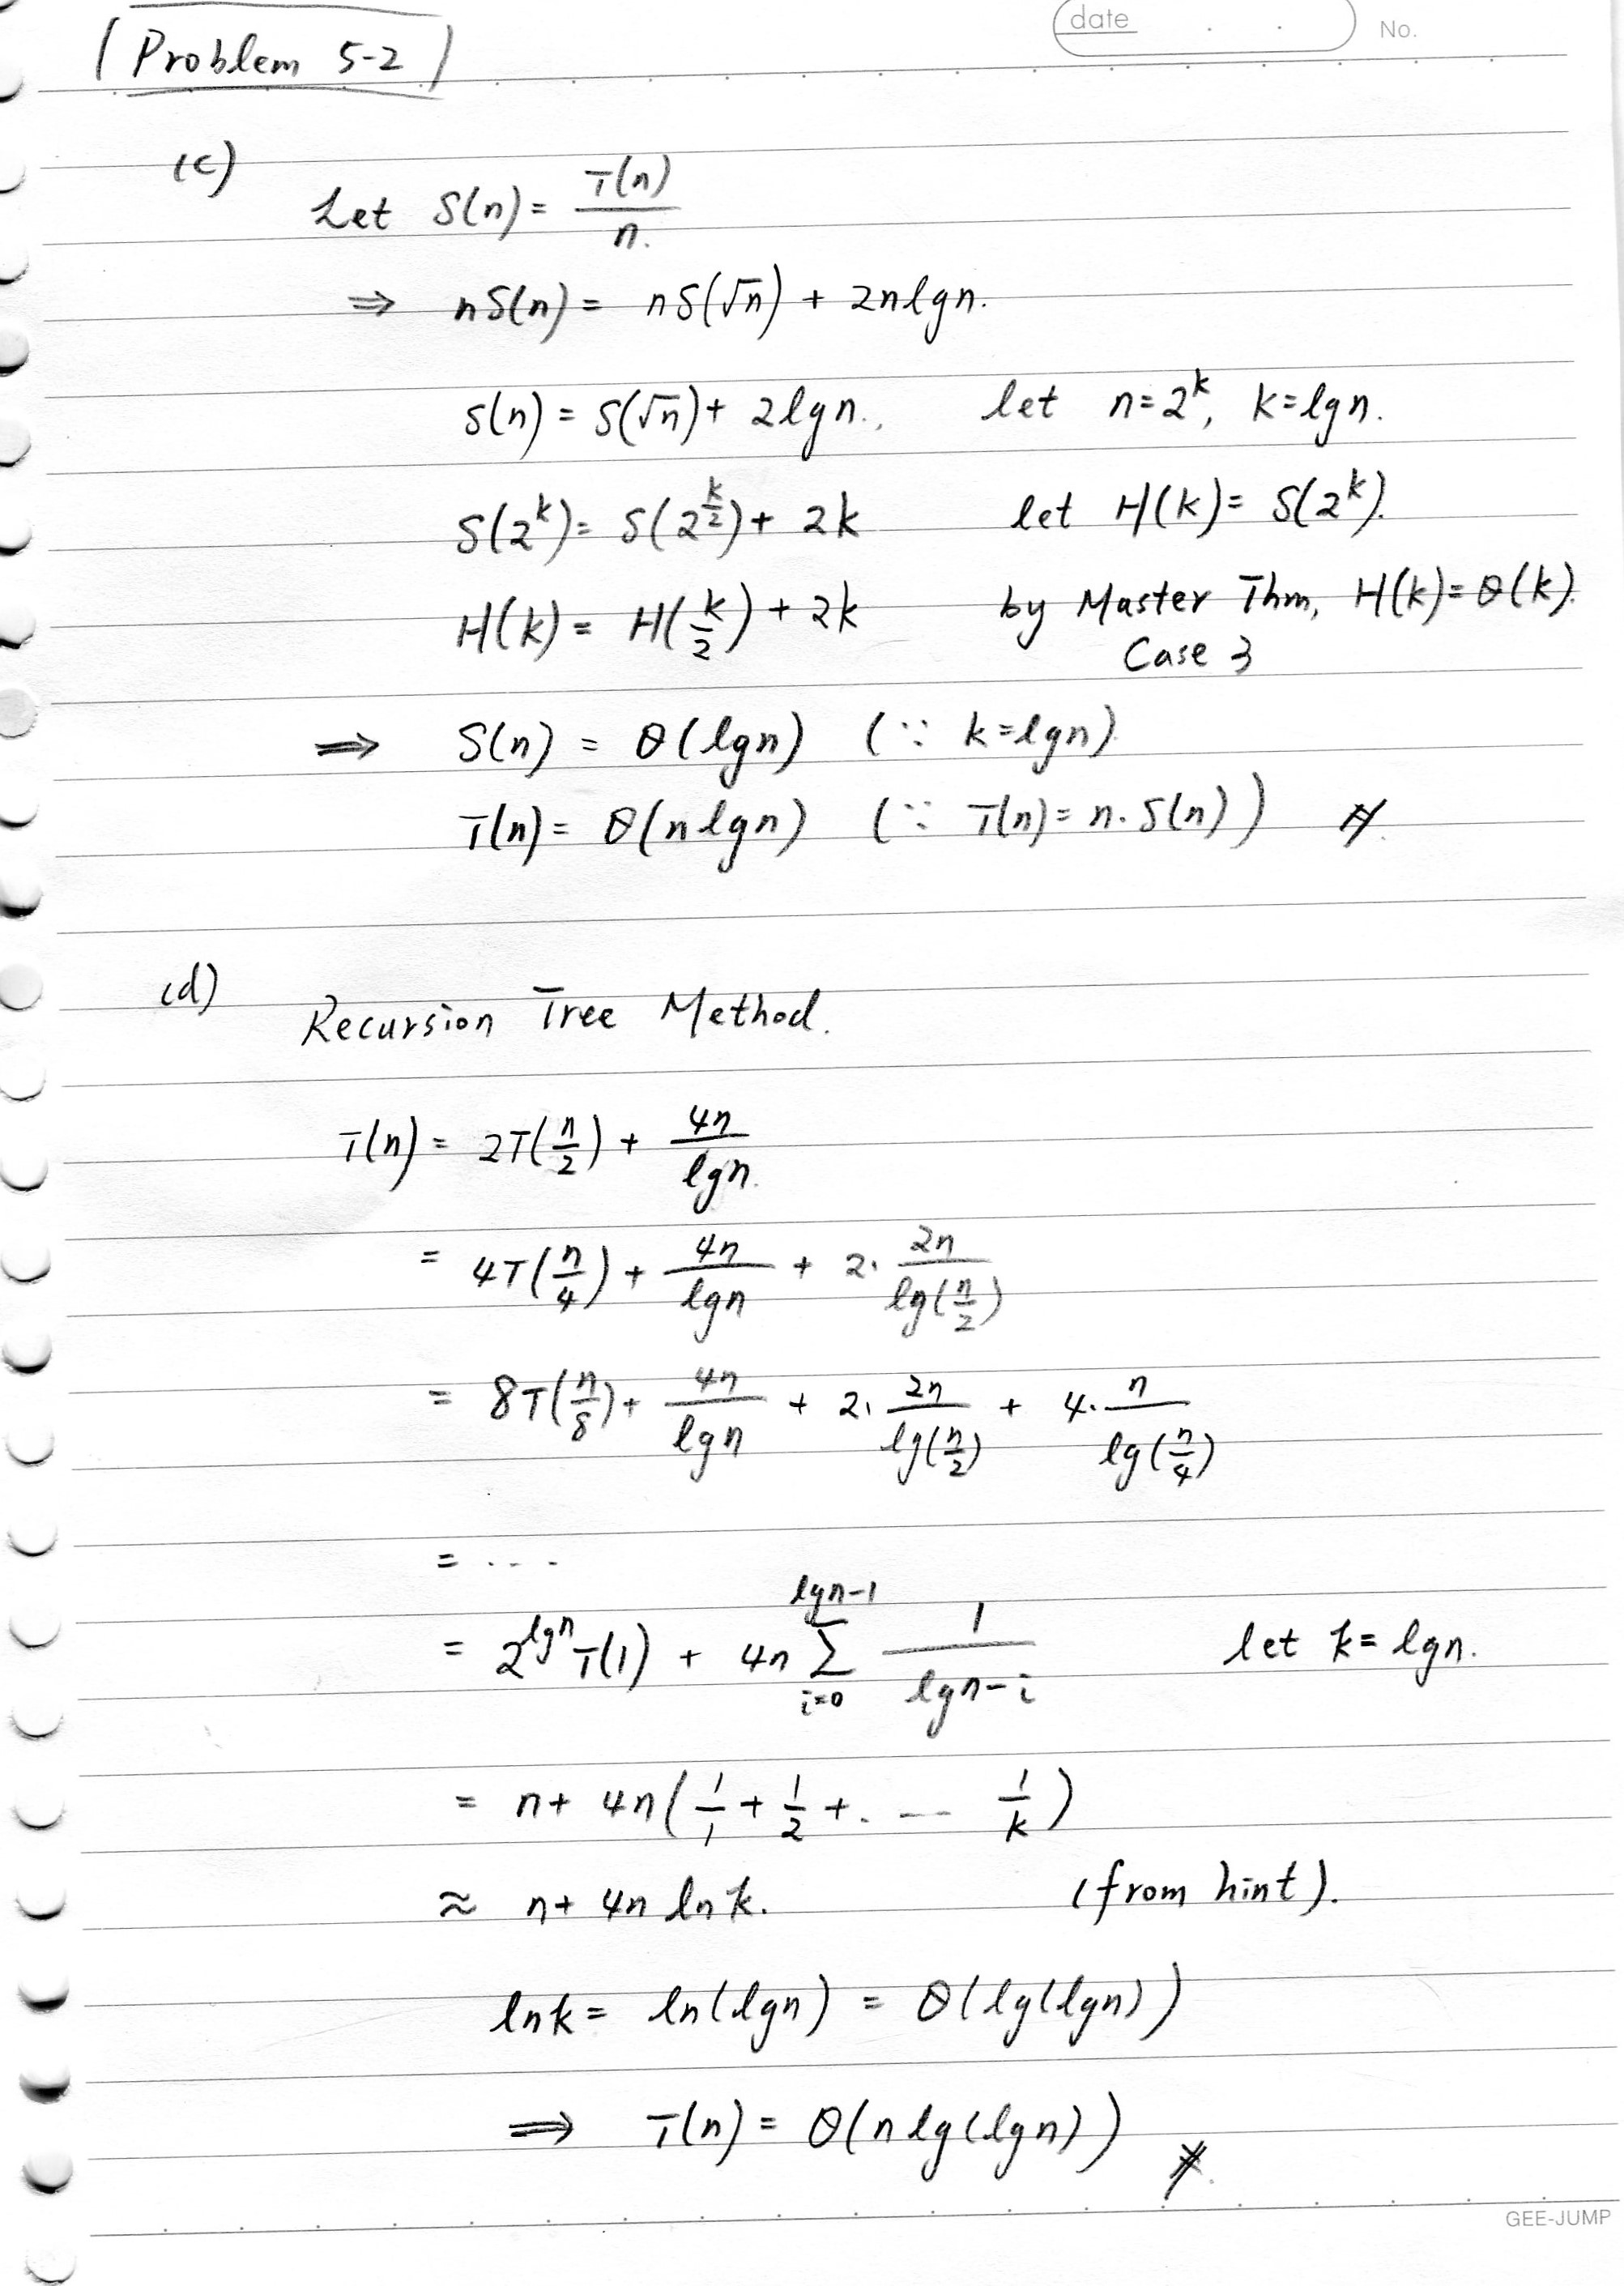 date . . No.
Problem 5-2
(c)
Let S(n) = T(n)/n.
⇒ nS(n) = nS(√n) + 2nlgn.
S(n) = S(√n) + 2lgn., let n=2^k, k=lgn.
S(2^k) = S(2^(k/2)) + 2k let H(k) = S(2^k).
H(k) = H(k/2) + 2k by Master Thm, H(k) = θ(k).
Case 3
⇒ S(n) = θ(lgn) (∵ k=lgn)
T(n) = θ(nlgn) (∵ T(n) = n·S(n))
(d)
Recursion Tree Method.
T(n) = 2T(n/2) + 4n/lgn.
= 4T(n/4) + 4n/lgn + 2·2n/lg(n/2)
= 8T(n/8) + 4n/lgn + 2·2n/lg(n/2) + 4·n/lg(n/4)
= ....
= 2^(lgn) T(1) + 4n Σ_{i=0}^{lgn-1} 1/(lgn-i) let k = lgn.
= n + 4n(1/1 + 1/2 + ... 1/k)
≈ n + 4n ln k. (from hint).
lnk = ln(lgn) = θ(lg(lgn))
⇒ T(n) = θ(n lg(lgn))
GEE-JUMP